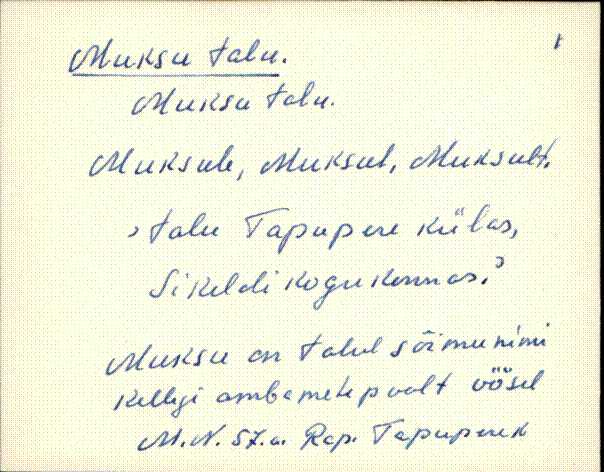 Muksu talu.
Muksu talu.
Muksule, Muksul, Muksult.
› talu Tapupere külas,
Sikeldi kogukonnas.?
Muksu on talul sõimunimi
kellegi ambamete poolt öösel
M.N. 57.a. Rap. Tapupere k